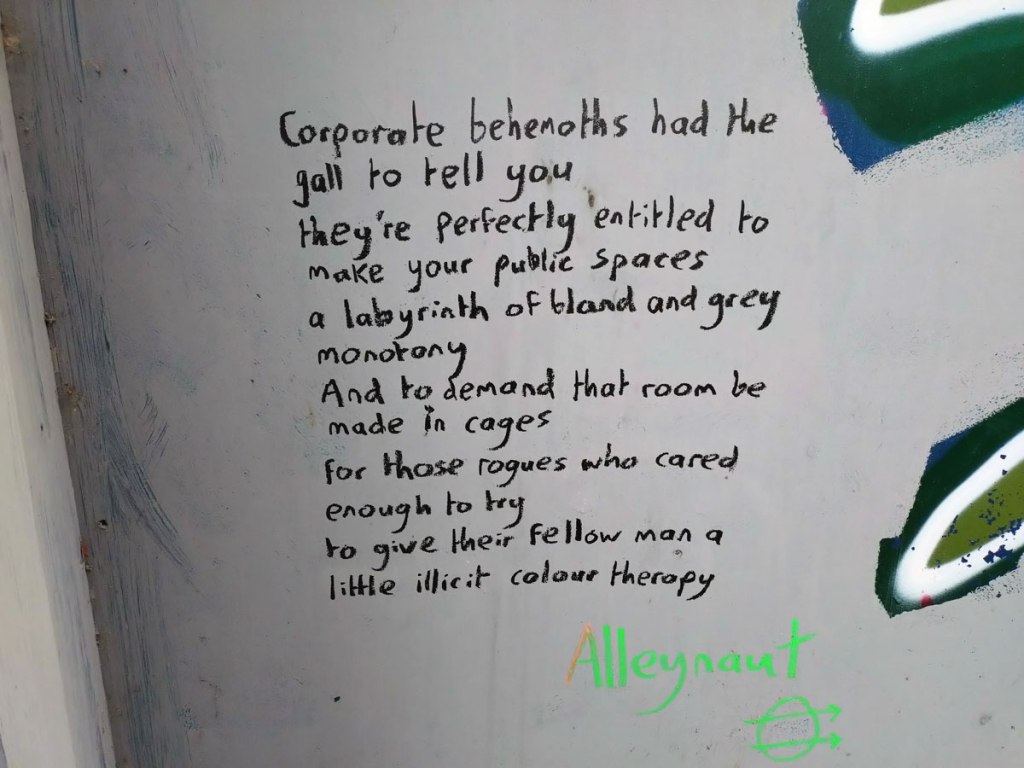 Corporate behemoths had the
gall to tell you
they're perfectly entitled to
make your public spaces
a labyrinth of bland and grey
monotony
And to demand that room be
made in cages
for those rogues who cared
enough to try
to give their fellow man a
little illicit colour therapy
Alleynaut